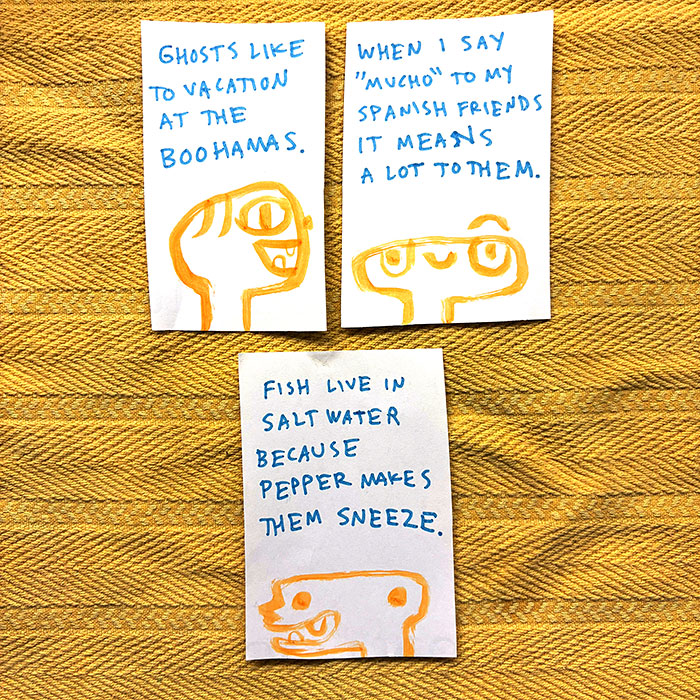 GHOSTS LIKE
TO VACATION
AT THE
BOOHAMAS.
WHEN I SAY
"MUCHO" TO MY
SPANISH FRIENDS
IT MEANS
A LOT TO THEM.
FISH LIVE IN
SALT WATER
BECAUSE
PEPPER MAKES
THEM SNEEZE.